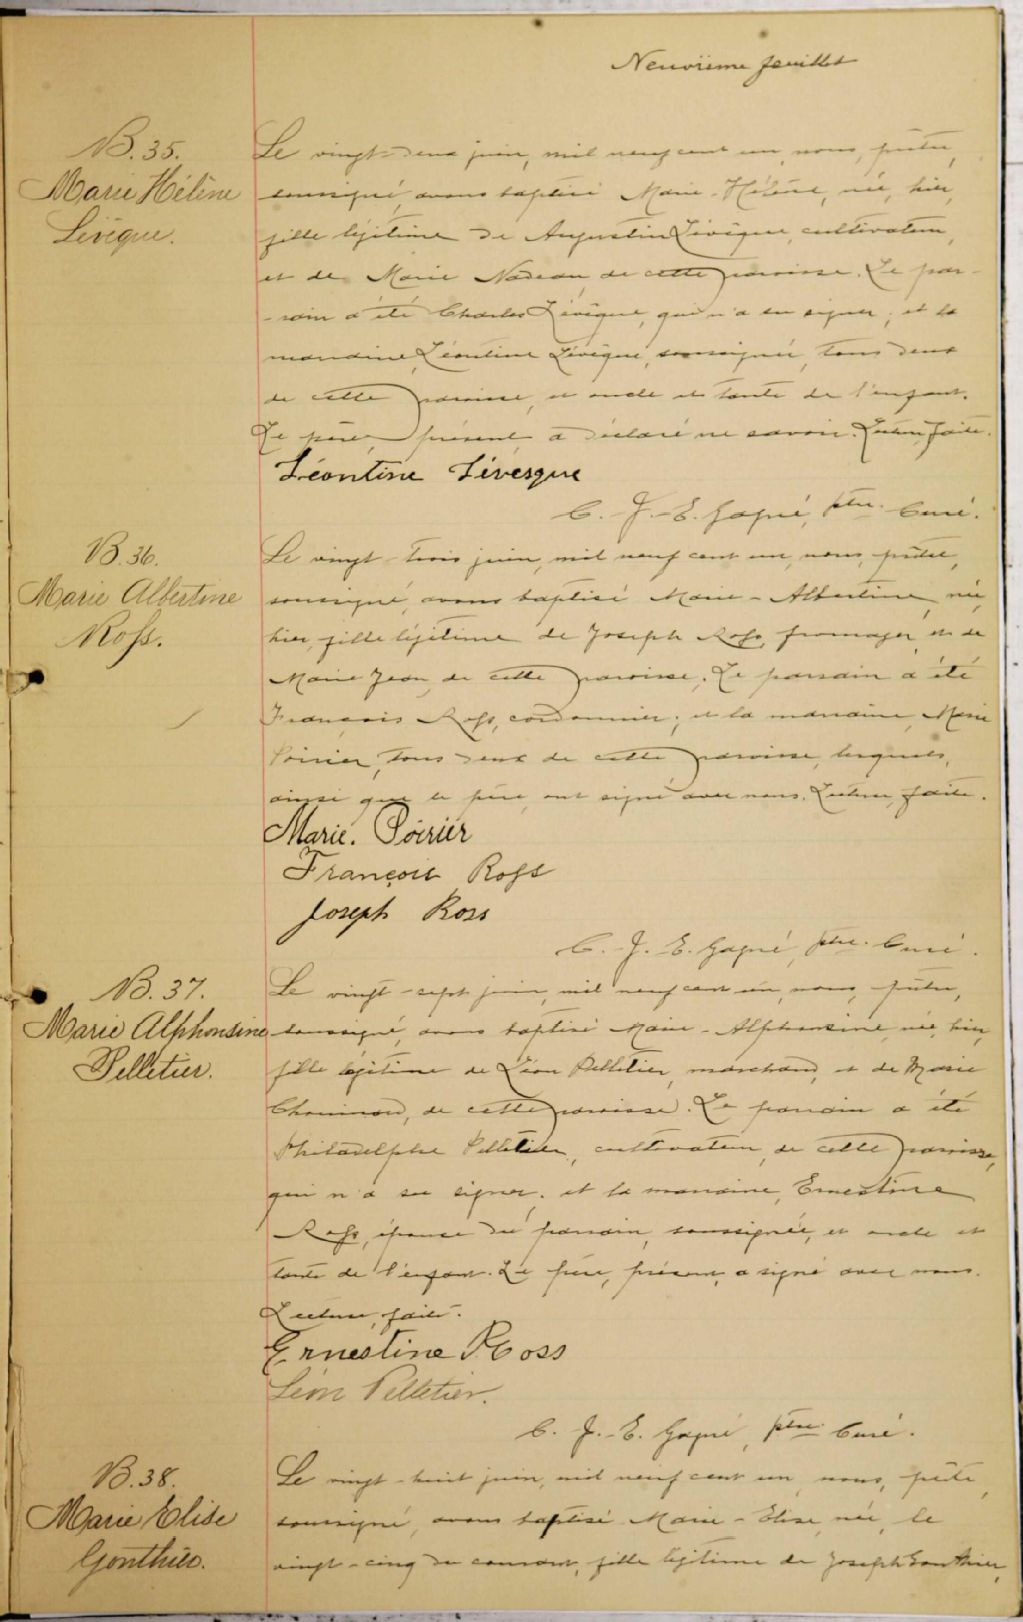 Neuvième feuillet
B. 35.
Marie Hélène
Lévêque.
Le vingt-deux juin, mil neuf cent un, nous, prêtre,
soussigné, avons baptisé Marie-Hélène, née, hier,
fille légitime de Augustin Lévêque, cultivateur,
et de Marie Nadeau, de cette paroisse. Le par-
-rain a été Charles Lévêque, qui n'a su signer; et la
marraine, Léontine Lévêque, soussignée, tous deux
de cette paroisse, et oncle et tante de l'enfant.
Le père, présent a déclaré ne savoir. Lecture faite.
Léontine Lévesque
C.-J.-E. Gagné, ptre. Curé.
B. 36.
Marie Albertine
Ross.
Le vingt-trois juin, mil neuf cent un, nous, prêtre,
soussigné, avons baptisé Marie-Albertine, née,
hier, fille légitime de Joseph Ross, fromager, et de
Marie Jean, de cette paroisse. Le parrain a été
François Ross, cordonnier; et la marraine, Marie
Poirier, tous deux de cette paroisse, lesquels,
ainsi que le père, ont signé avec nous. Lecture faite.
Marie. Poirier
François Ross
Joseph Ross
C.-J.-E. Gagné, ptre. Curé.
B. 37.
Marie Alphonsine
Pelletier.
Le vingt-sept juin, mil neuf cent un, nous, prêtre,
soussigné, avons baptisé Marie-Alphonsine, née, hier,
fille légitime de Léon Pelletier, marchand, et de Marie
Chouinard, de cette paroisse. Le parrain a été
Philadelphe Pelletier, cultivateur, de cette paroisse,
qui n'a su signer; et la marraine, Ernestine
Ross, épouse du parrain, soussignée, et oncle et
tante de l'enfant. Le père, présent, a signé avec nous.
Lecture, faite.
Ernestine Ross
Léon Pelletier.
C.-J.-E. Gagné, ptre. Curé.
B. 38.
Marie Elise
Gonthier.
Le vingt-huit juin, mil neuf cent un, nous, prêtre,
soussigné, avons baptisé Marie-Elise, née, le
vingt-cinq du courant, fille légitime de Joseph Gonthier,